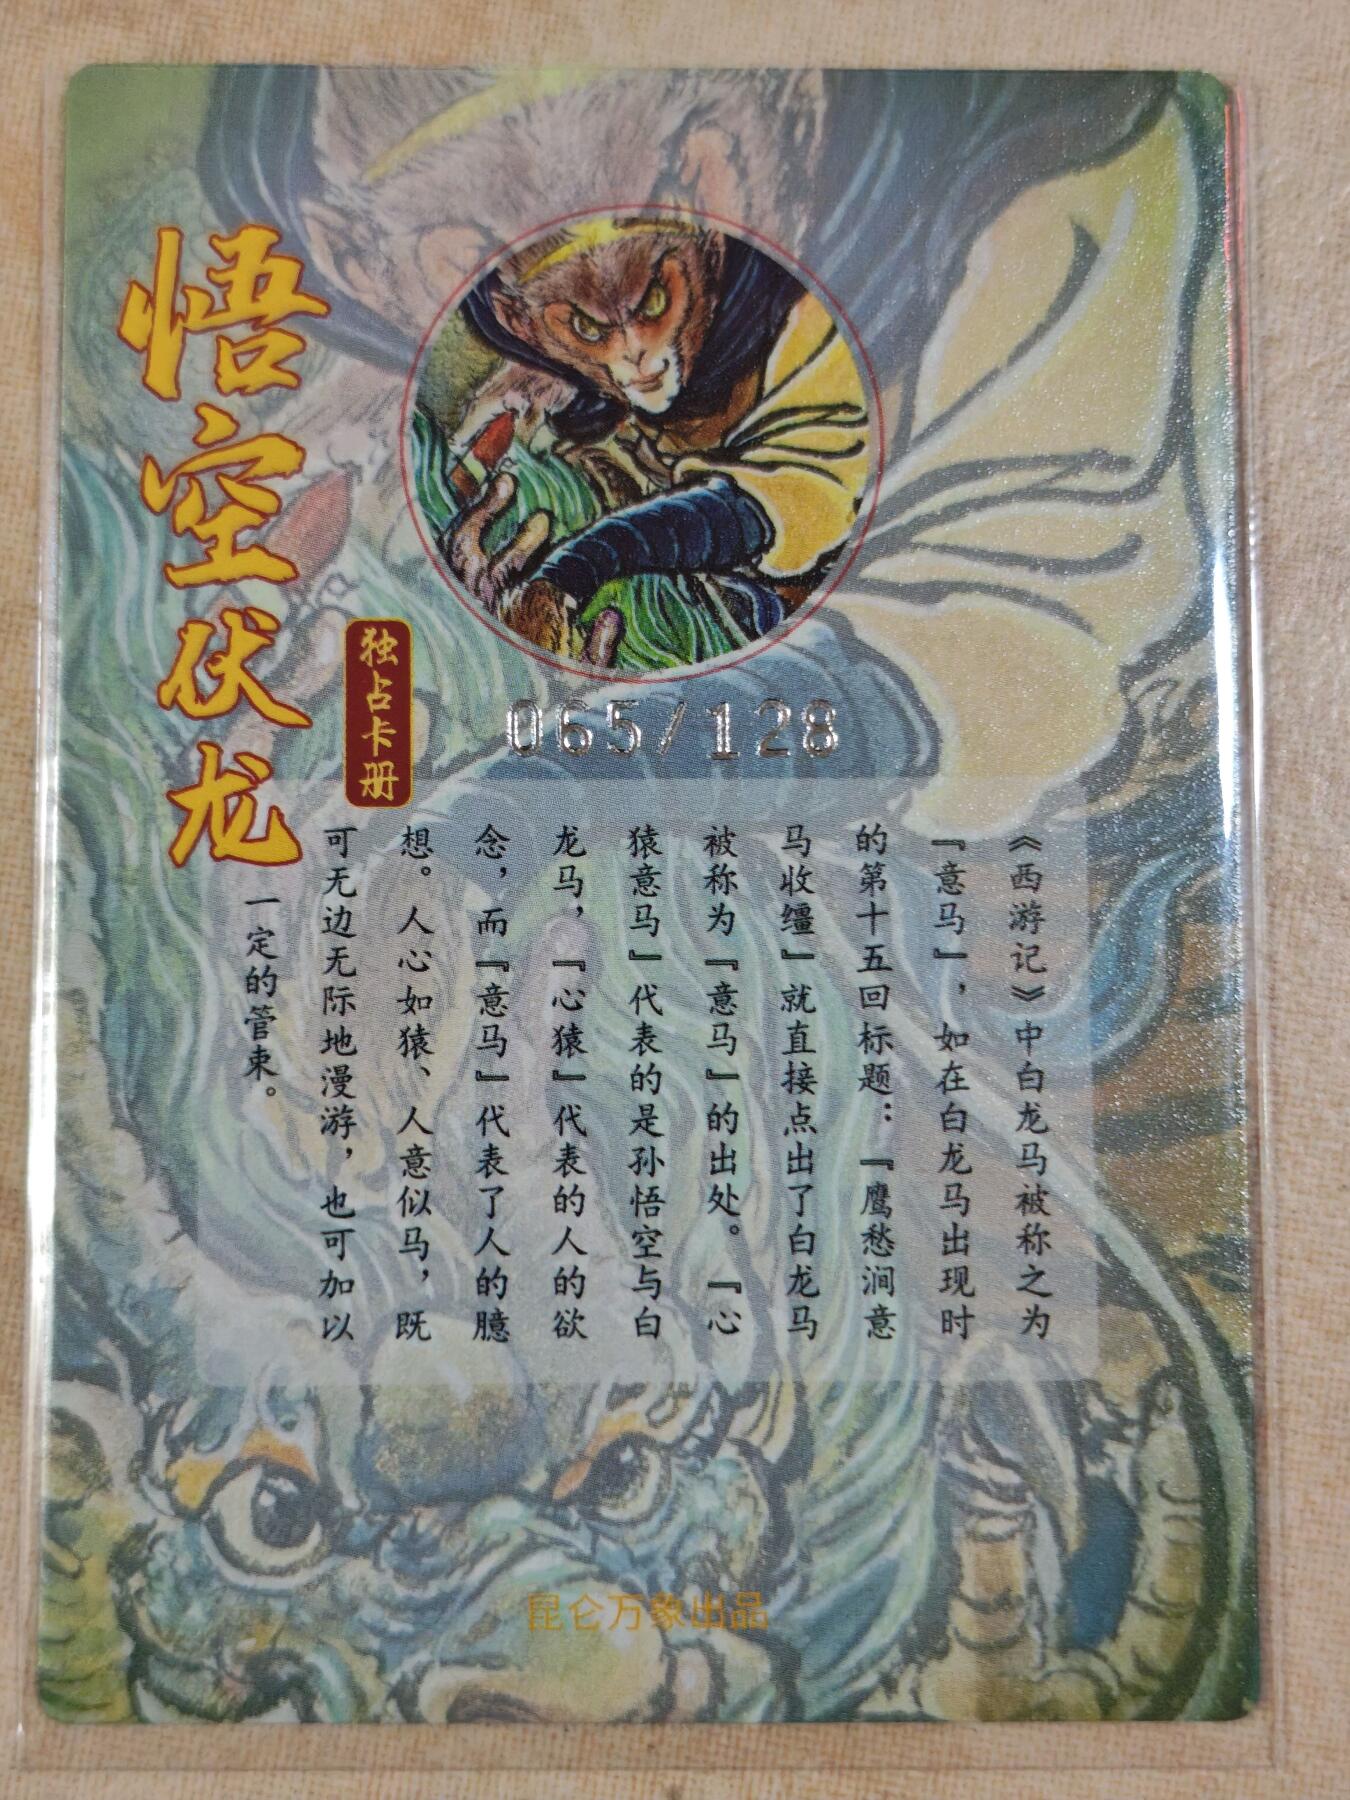 悟空伏龙
独占卡册
065/128
《西游记》中白龙马被称之为
『意马』，如在白龙马出现时
的第十五回标题：『鹰愁涧意
马收缰』就直接点出了白龙马
被称为『意马』的出处。『心
猿意马』代表的是孙悟空与白
龙马，『心猿』代表的人的欲
念，而『意马』代表了人的臆
想。人心如猿、人意似马，既
可无边无际地漫游，也可加以
一定的管束。
昆仑万象出品